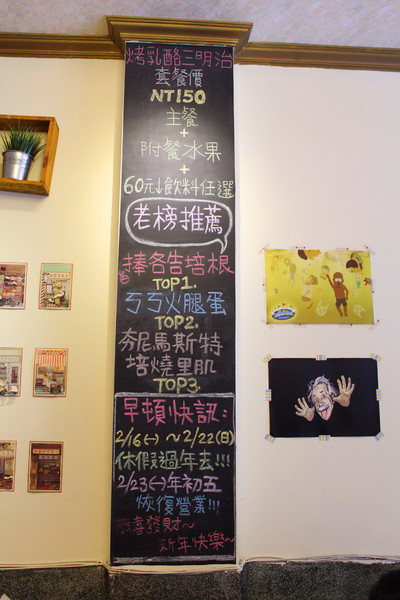 烤乳酪三明治
套餐價
NT150
主餐
+
附餐水果
+
60元↓飲料任選
老榜推薦
捧各告培根
TOP1.
ㄎㄎ火腿蛋
TOP2.
夯尼馬斯特
培燒里肌
TOP3.
早頓快訊:
2/16(一)~2/22(日)
休假過年去!!!
2/23(一)年初五
恢復營業!!!
恭喜發財~
新年快樂~